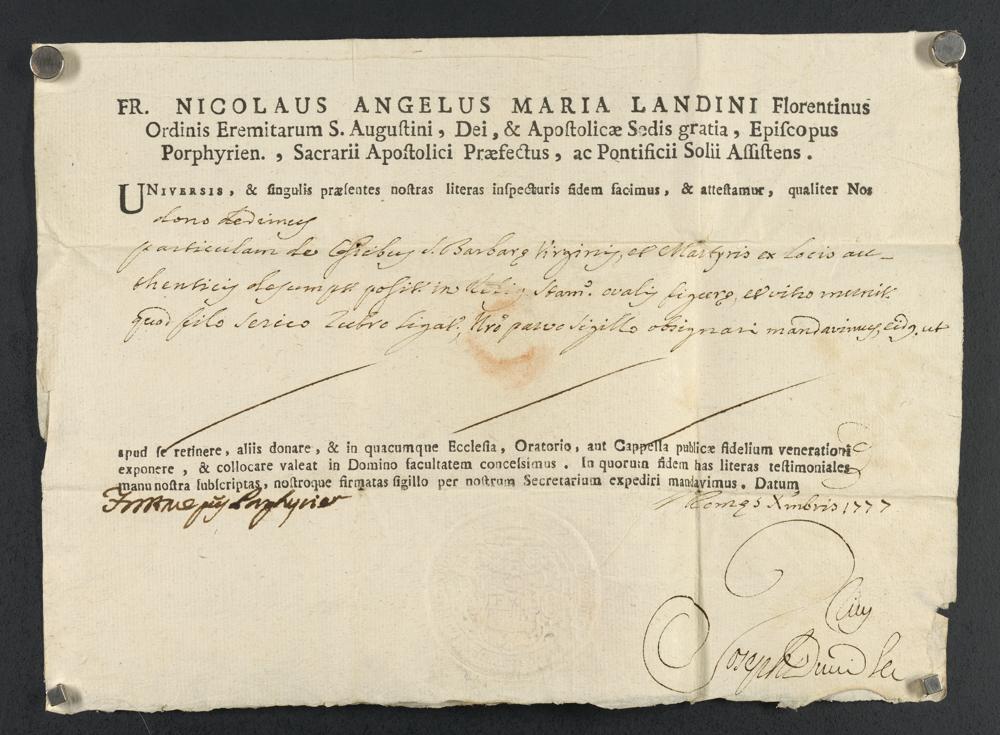 FR. NICOLAUS ANGELUS MARIA LANDINI Florentinus
Ordinis Eremitarum S. Auguſtini, Dei, & Apoſtolicæ Sedis gratia, Epiſcopus
Porphyrien., Sacrarii Apoſtolici Præfectus, ac Pontificii Solii Aſſiſtens.
UNIVERSIS, & ſingulis præſentes noſtras literas inſpecturis fidem facimus, & atteſtamur, qualiter Nos
dono dedimus
particulam de S. Barbarę Virginis, et Martyris ex Locis au-
thenticis desumpt posit in ovalis figurę, et vitro munit
quod filo serico rubro ligat, Nro parvo sigillo obsignari mandavimus, ut
apud ſe retinere, aliis donare, & in quacumque Eccleſia, Oratorio, aut Cappella publicæ fidelium venerationi
exponere, & collocare valeat in Domino facultatem conceſſimus. In quorum fidem has literas teſtimoniales
manu noſtra ſubſcriptas, noſtroque firmatas ſigillo per noſtrum Secretarium expediri mandavimus. Datum
Porphyrien
Romę Xmbris 1777
Joseph